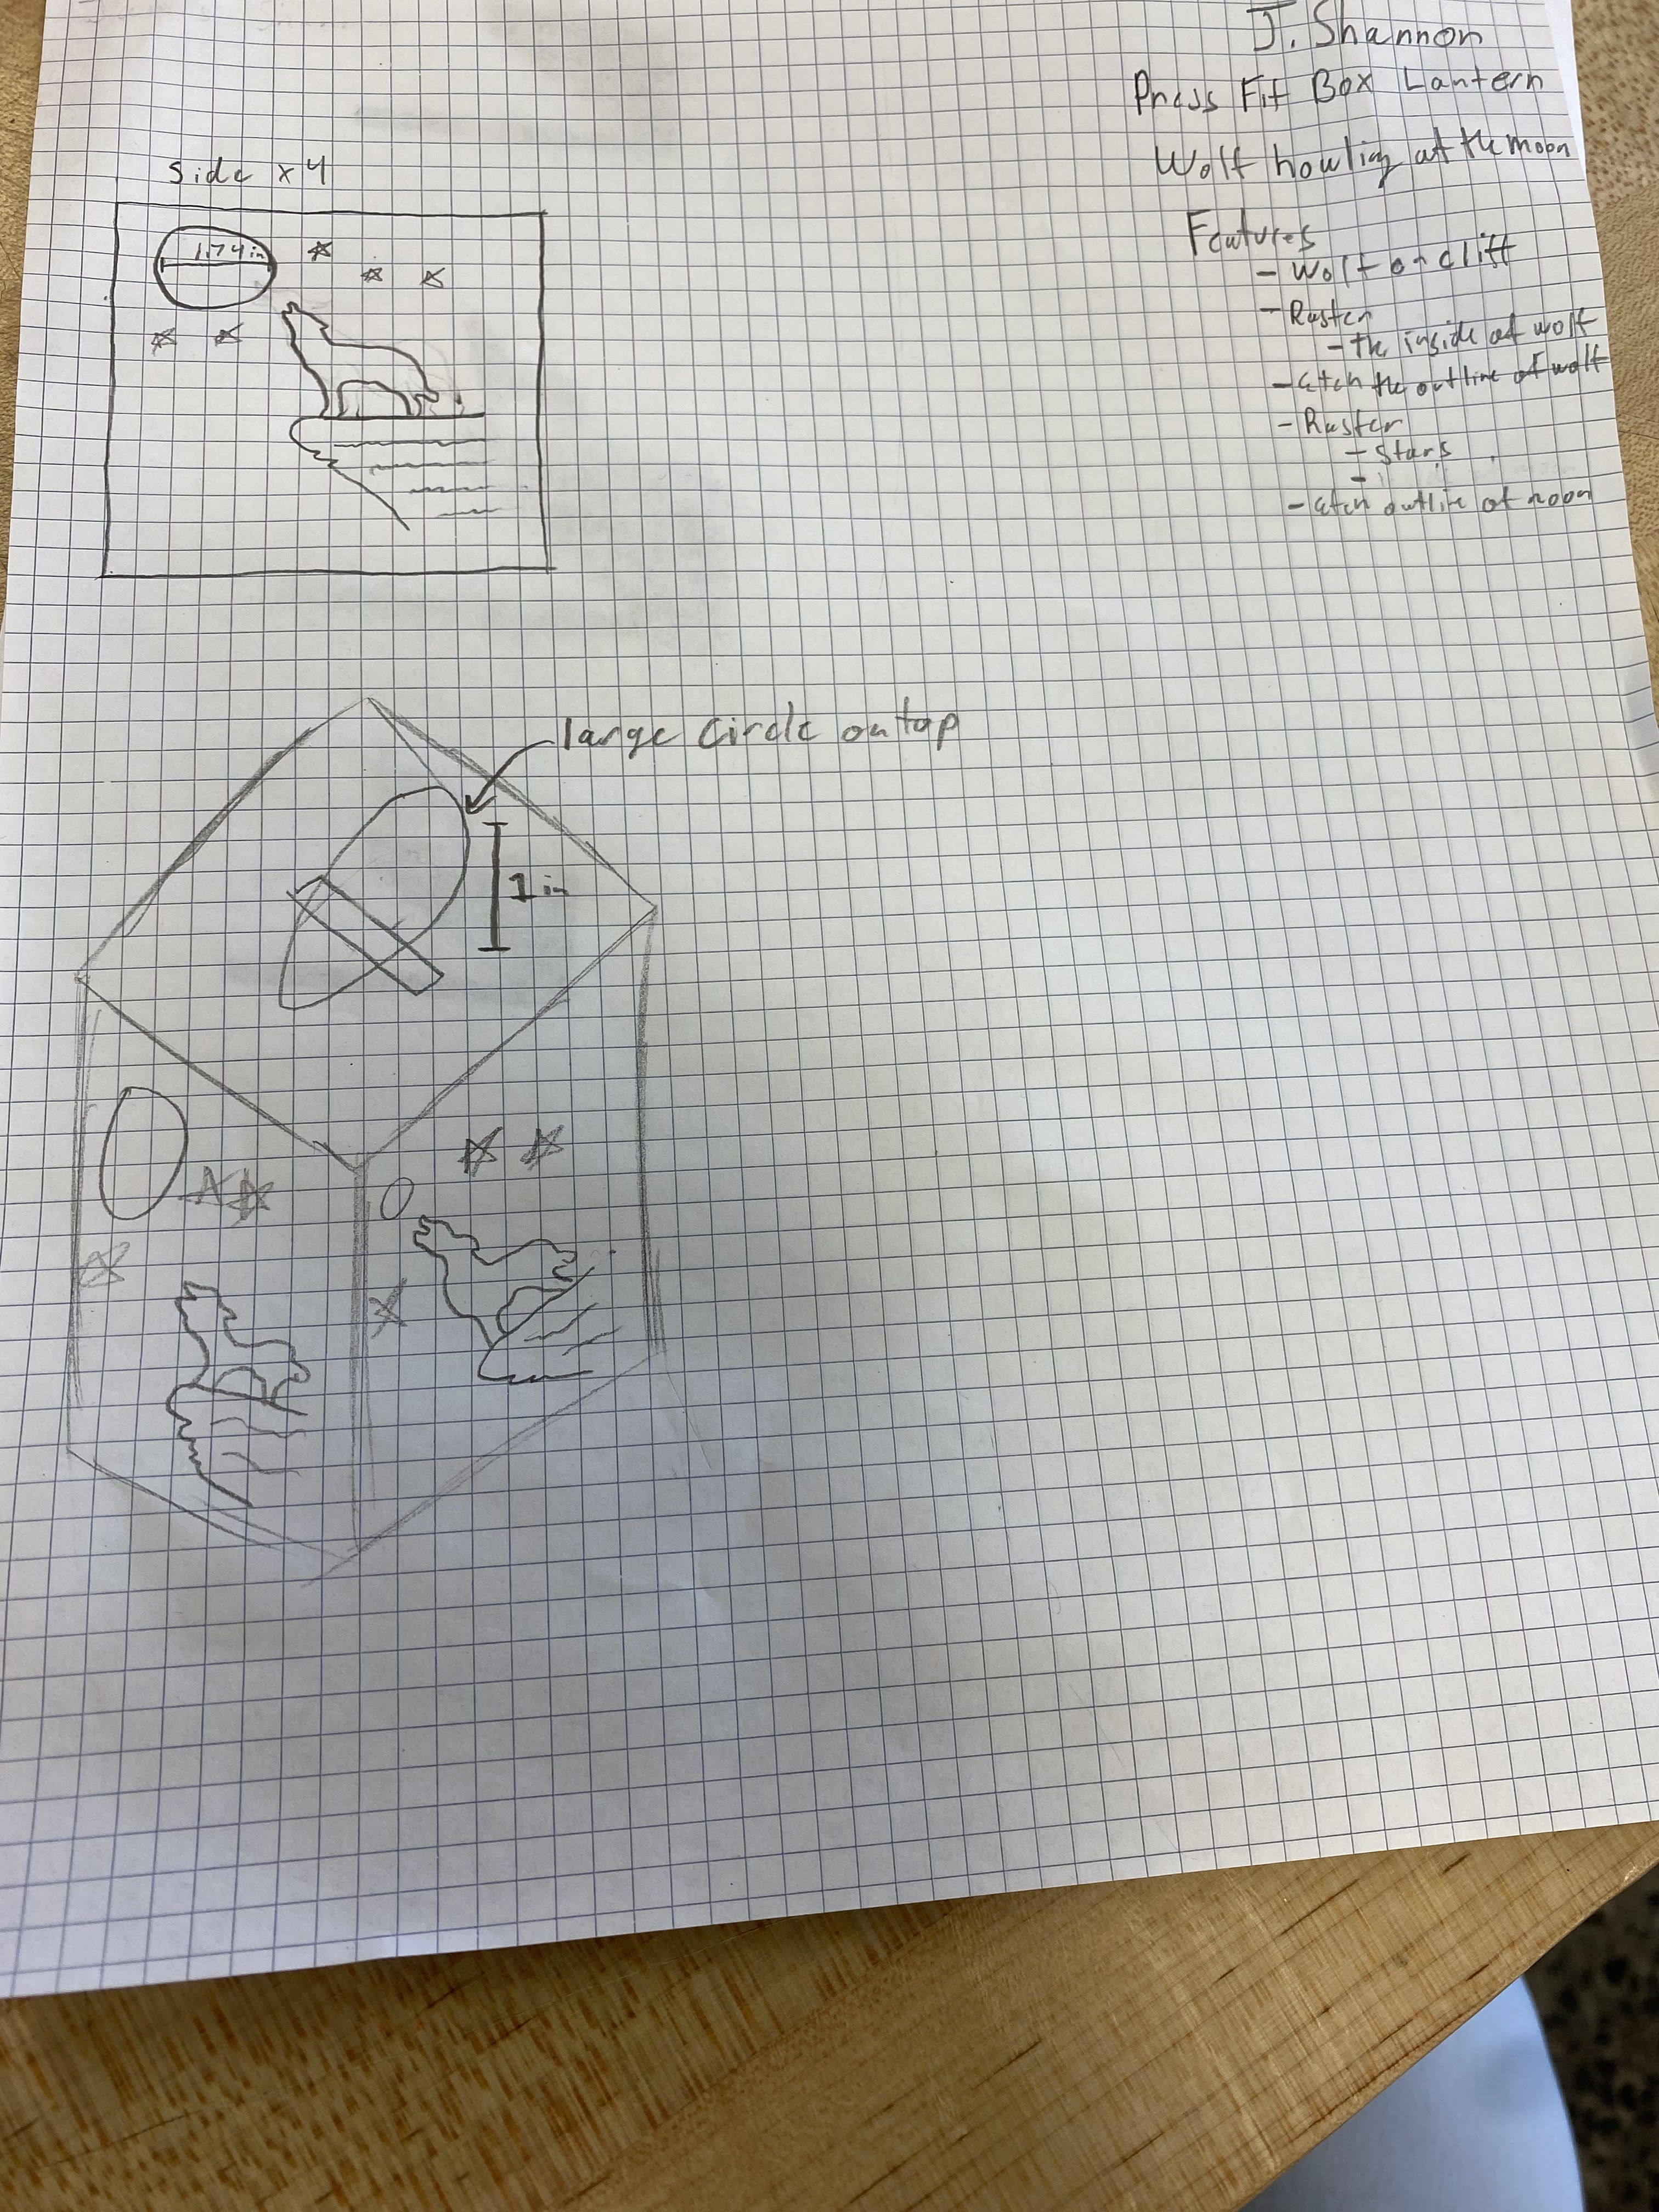 J. Shannon
Press Fit Box Lantern
Wolf howling at the moon
side x 4
1.74 in
Features
- Wolf on cliff
- Raster
- the inside of wolf
- etch the outline of wolf
- Raster
- Stars
-
- etch outline of moon
large circle on top
1 in